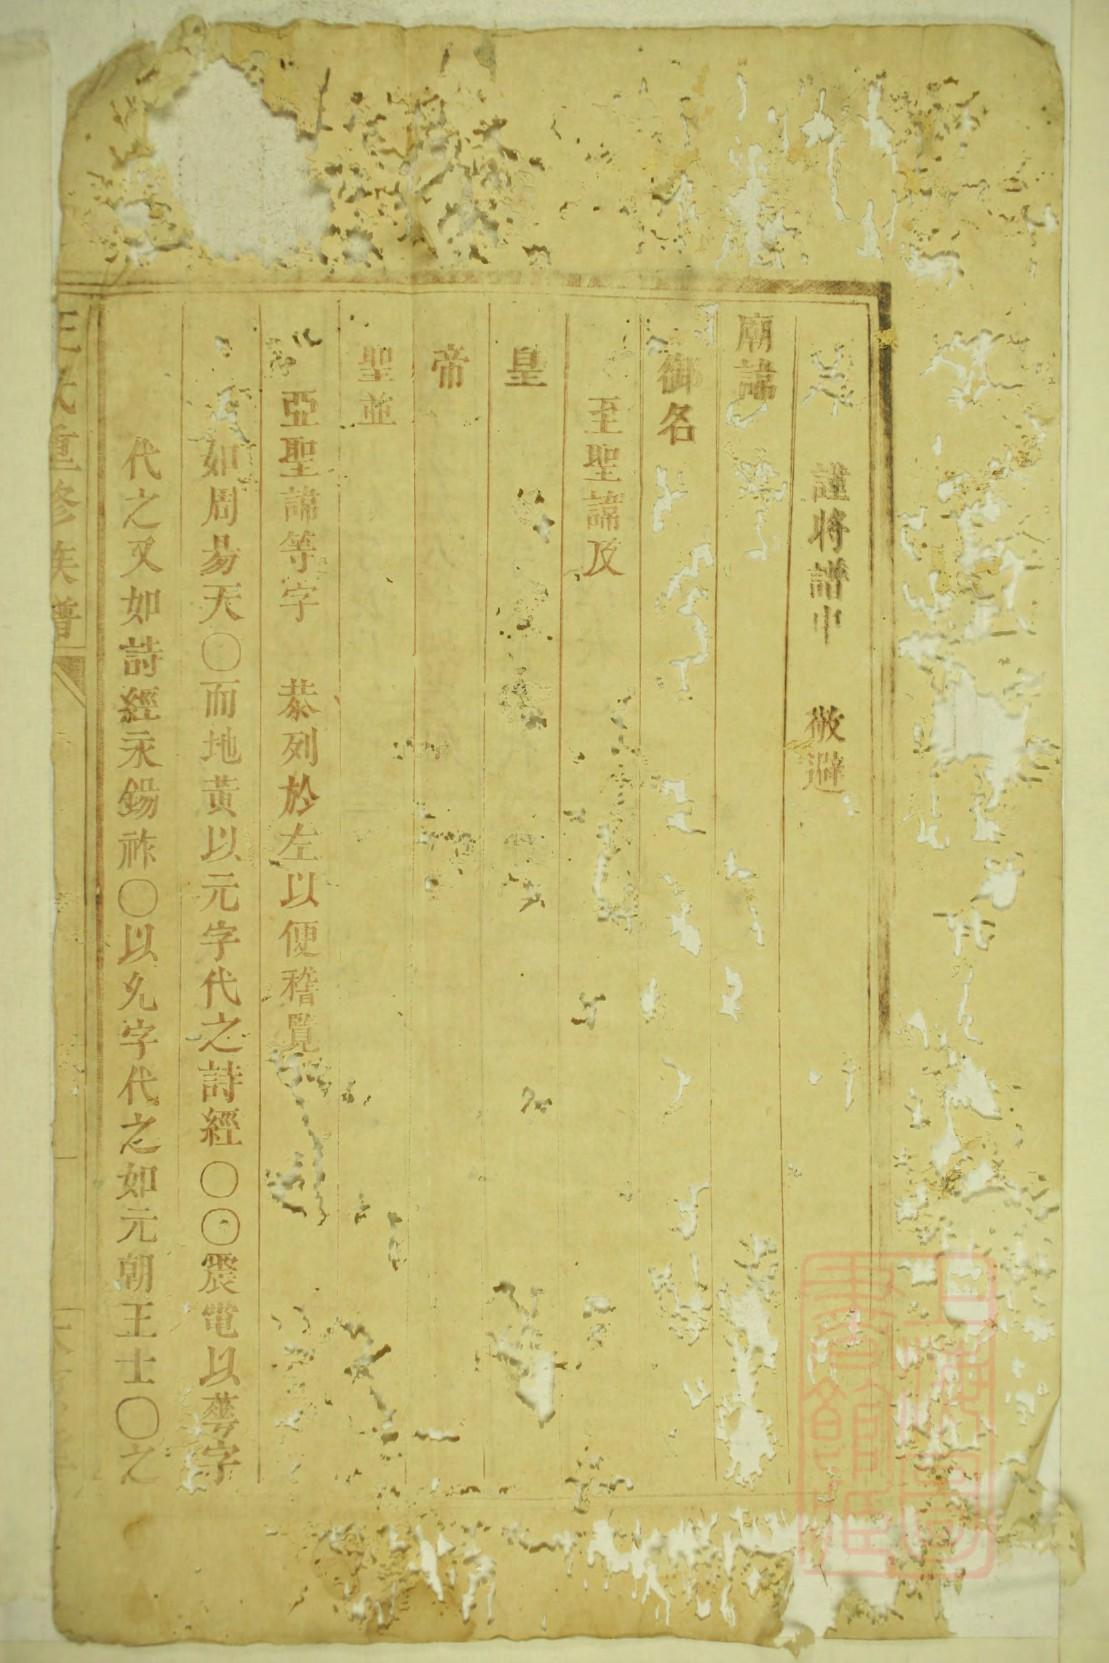 謹將譜中 敬避
廟諱
御名
至聖諱及
皇
帝
聖並
亞聖諱等字 恭列於左以便稽覽
如周易天〇而地黃以元字代之詩經〇〇震電以華字
代之又如詩經永錫祚〇以允字代之如元朝王士〇之
王氏重修族譜
上海圖書館藏